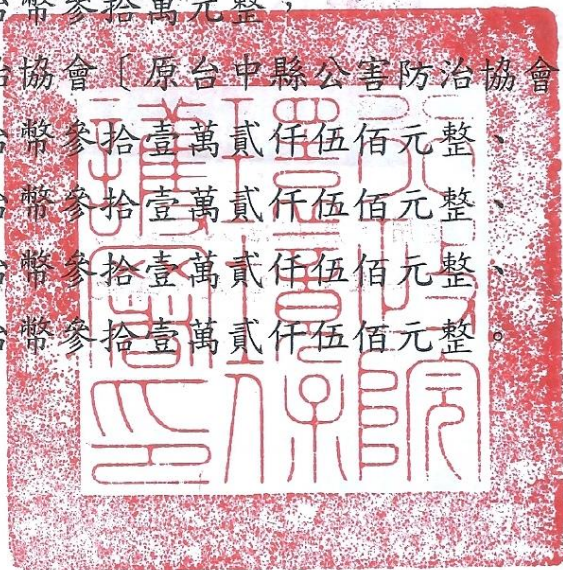 台幣參拾萬元整，
治協會〔原台中縣公害防治協會
台幣參拾壹萬貳仟伍佰元整、
台幣參拾壹萬貳仟伍佰元整、
台幣參拾壹萬貳仟伍佰元整、
台幣參拾壹萬貳仟伍佰元整。
行政院
環境保
護署印